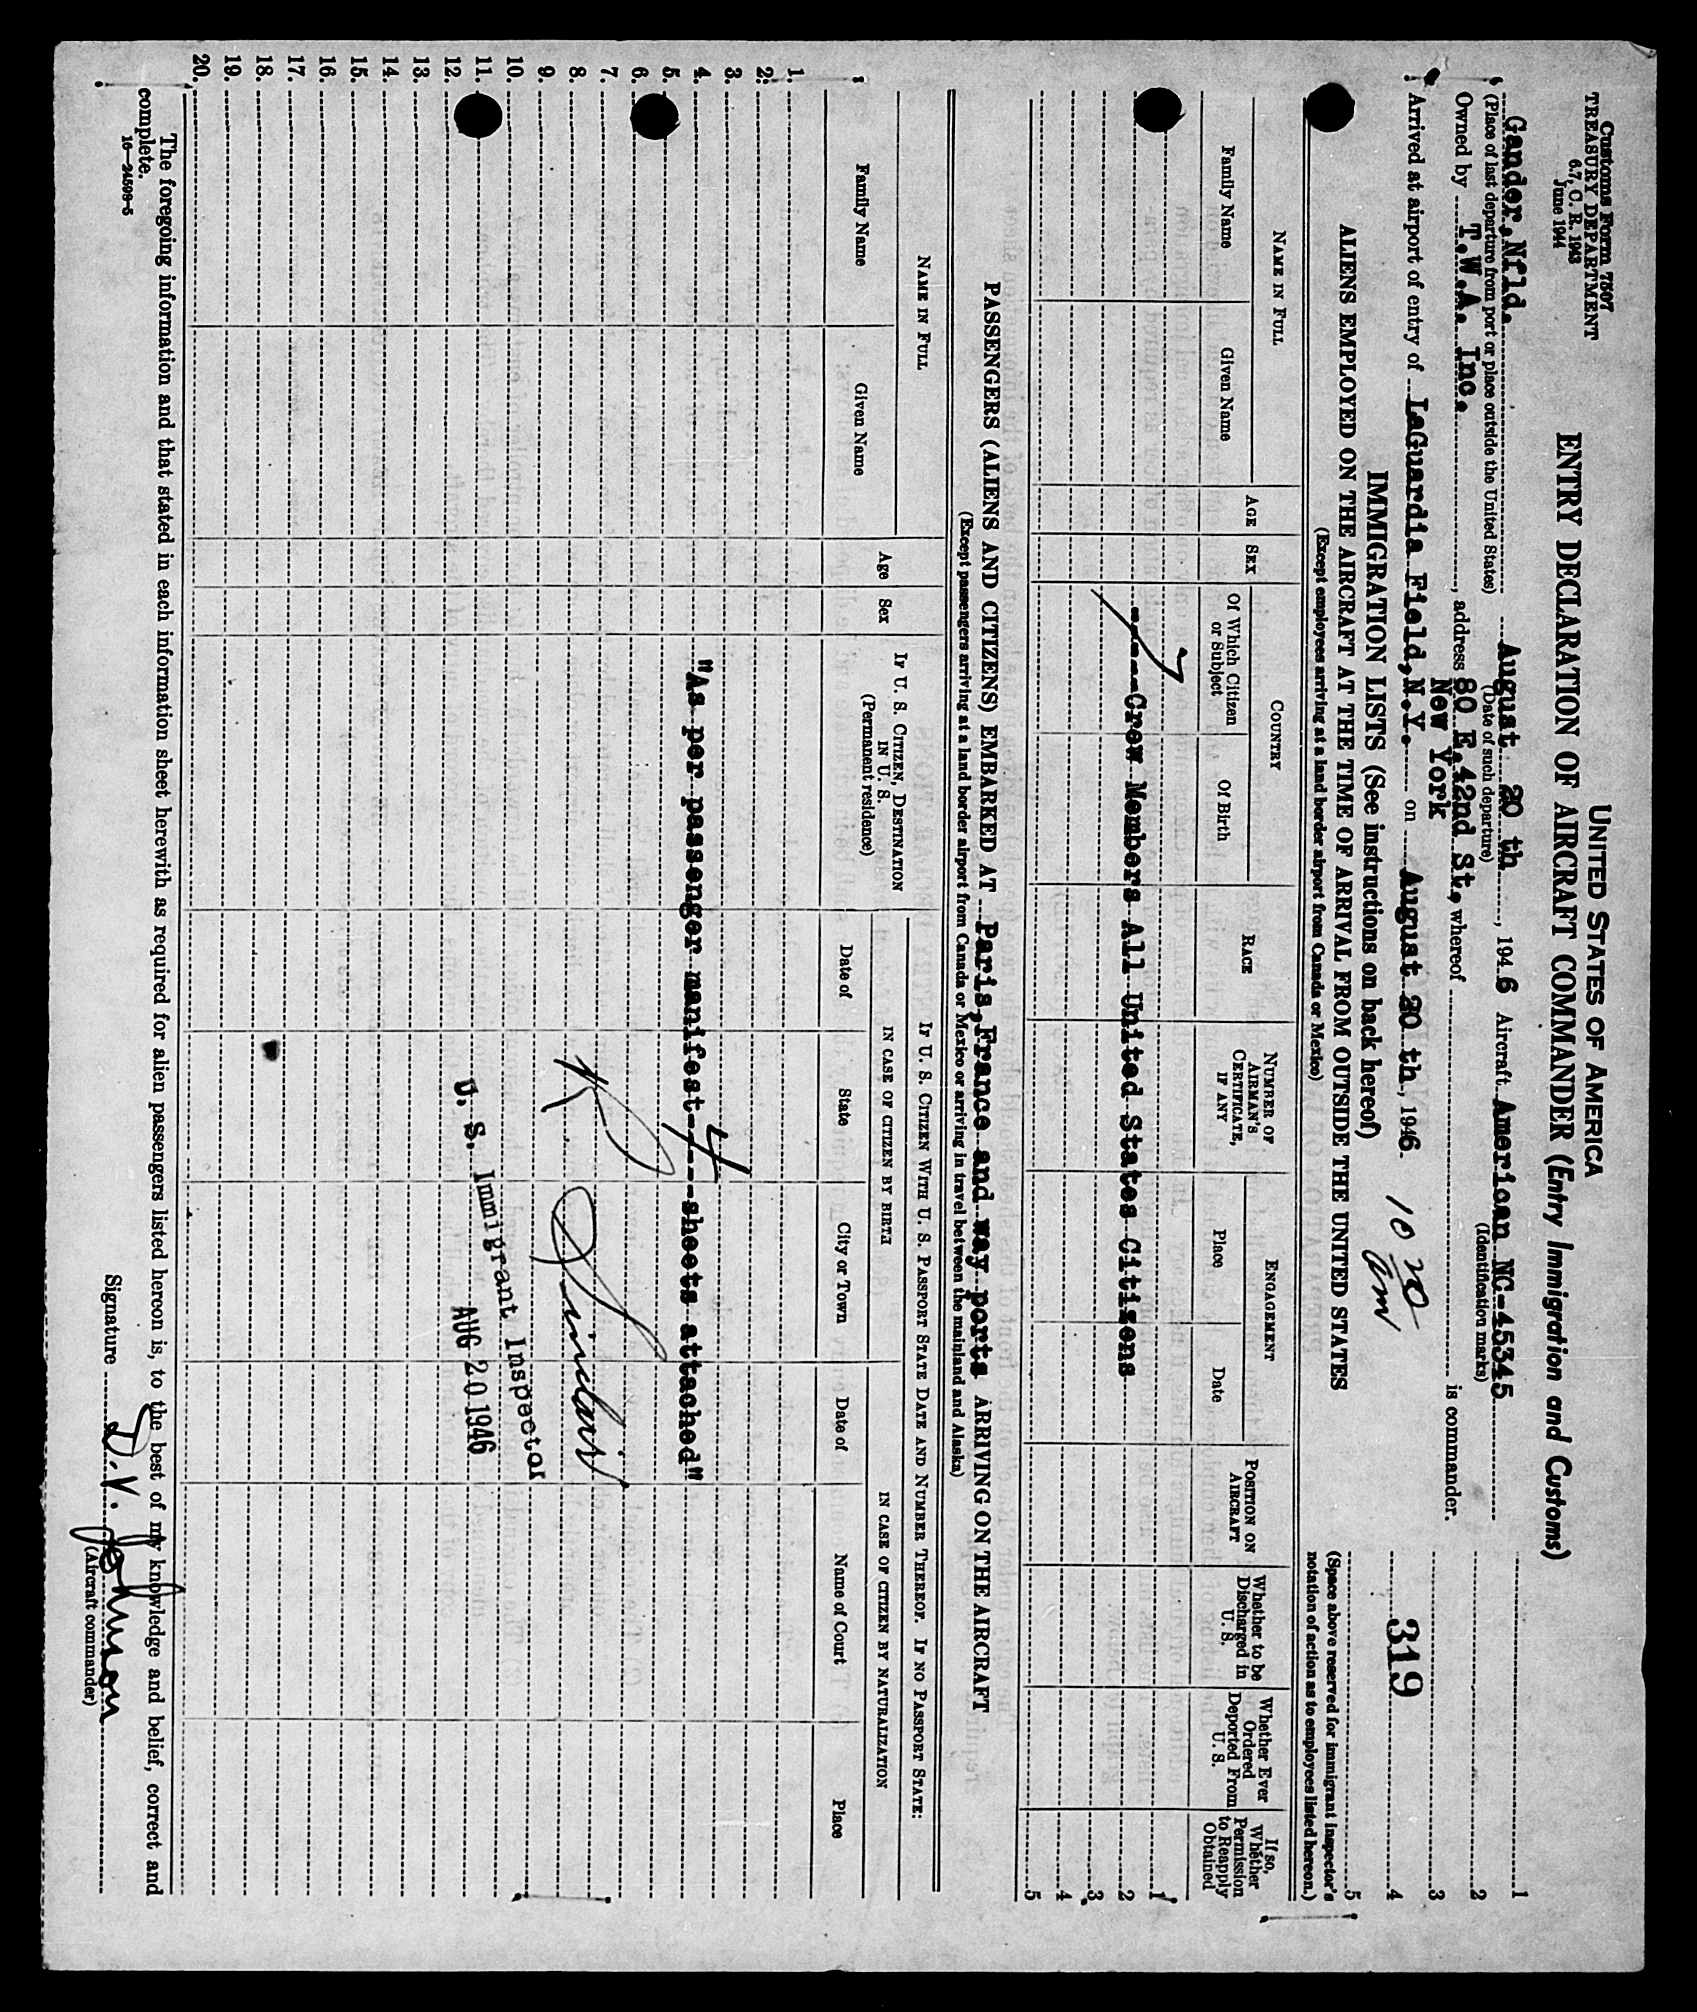 Customs Form 7507
TREASURY DEPARTMENT
6.7, C. R. 1943
June 1944
UNITED STATES OF AMERICA
ENTRY DECLARATION OF AIRCRAFT COMMANDER (Entry Immigration and Customs)
Gander, Nfld. August 20 th, 1946 Aircraft American NC-45345
(Place of last departure from port or place outside the United States) (Date of such departure) (Identification marks)
Owned by T.W.A. Inc., address 80 E. 42nd St., whereof is commander.
New York
Arrived at airport of entry of LaGuardia Field, N.Y. on August 20 th, 1946. 10 20 am
IMMIGRATION LISTS (See instructions on back hereof)
1
2
3
4
5
319
(Space above reserved for immigrant inspector's notation of action as to employees listed hereon.)
ALIENS EMPLOYED ON THE AIRCRAFT AT THE TIME OF ARRIVAL FROM OUTSIDE THE UNITED STATES
(Except employees arriving at a land border airport from Canada or Mexico)
NAME IN FULL
Family Name
Given Name
AGE
SEX
COUNTRY
Of Which Citizen or Subject
Of Birth
RACE
NUMBER OF AIRMAN'S CERTIFICATE, IF ANY
ENGAGEMENT
Place
Date
POSITION ON AIRCRAFT
Whether to be Discharged in U. S.
Whether Ever Ordered Deported From U. S.
If so, Whether Permission to Reapply Obtained
1
7 ----Crew Members All United States Citizens 2
3
4
5
PASSENGERS (ALIENS AND CITIZENS) EMBARKED AT Paris, France and way ports ARRIVING ON THE AIRCRAFT
(Except passengers arriving at a land border airport from Canada or Mexico or arriving in travel between the mainland and Alaska)
NAME IN FULL
Family Name
Given Name
Age
Sex
IF U. S. CITIZEN, DESTINATION IN U. S.
(Permanent residence)
IF U. S. CITIZEN WITH U. S. PASSPORT STATE DATE AND NUMBER THEREOF. IF NO PASSPORT STATE:
IN CASE OF CITIZEN BY BIRTH
Date of
State
City or Town
IN CASE OF CITIZEN BY NATURALIZATION
Date of
Name of Court
Place
1.
2.
3.
4. "As per passenger manifest- 4 ---sheets attached"
5.
6.
7.
8.
9.
10.
U. S. Immigrant Inspector
11.
AUG 20 1946
12.
13.
14.
15.
16.
17.
18.
19.
20.
The foregoing information and that stated in each information sheet herewith as required for alien passengers listed hereon is, to the best of my knowledge and belief, correct and
complete.
16—24598-5
Signature D. V. Johnson
(Aircraft commander)